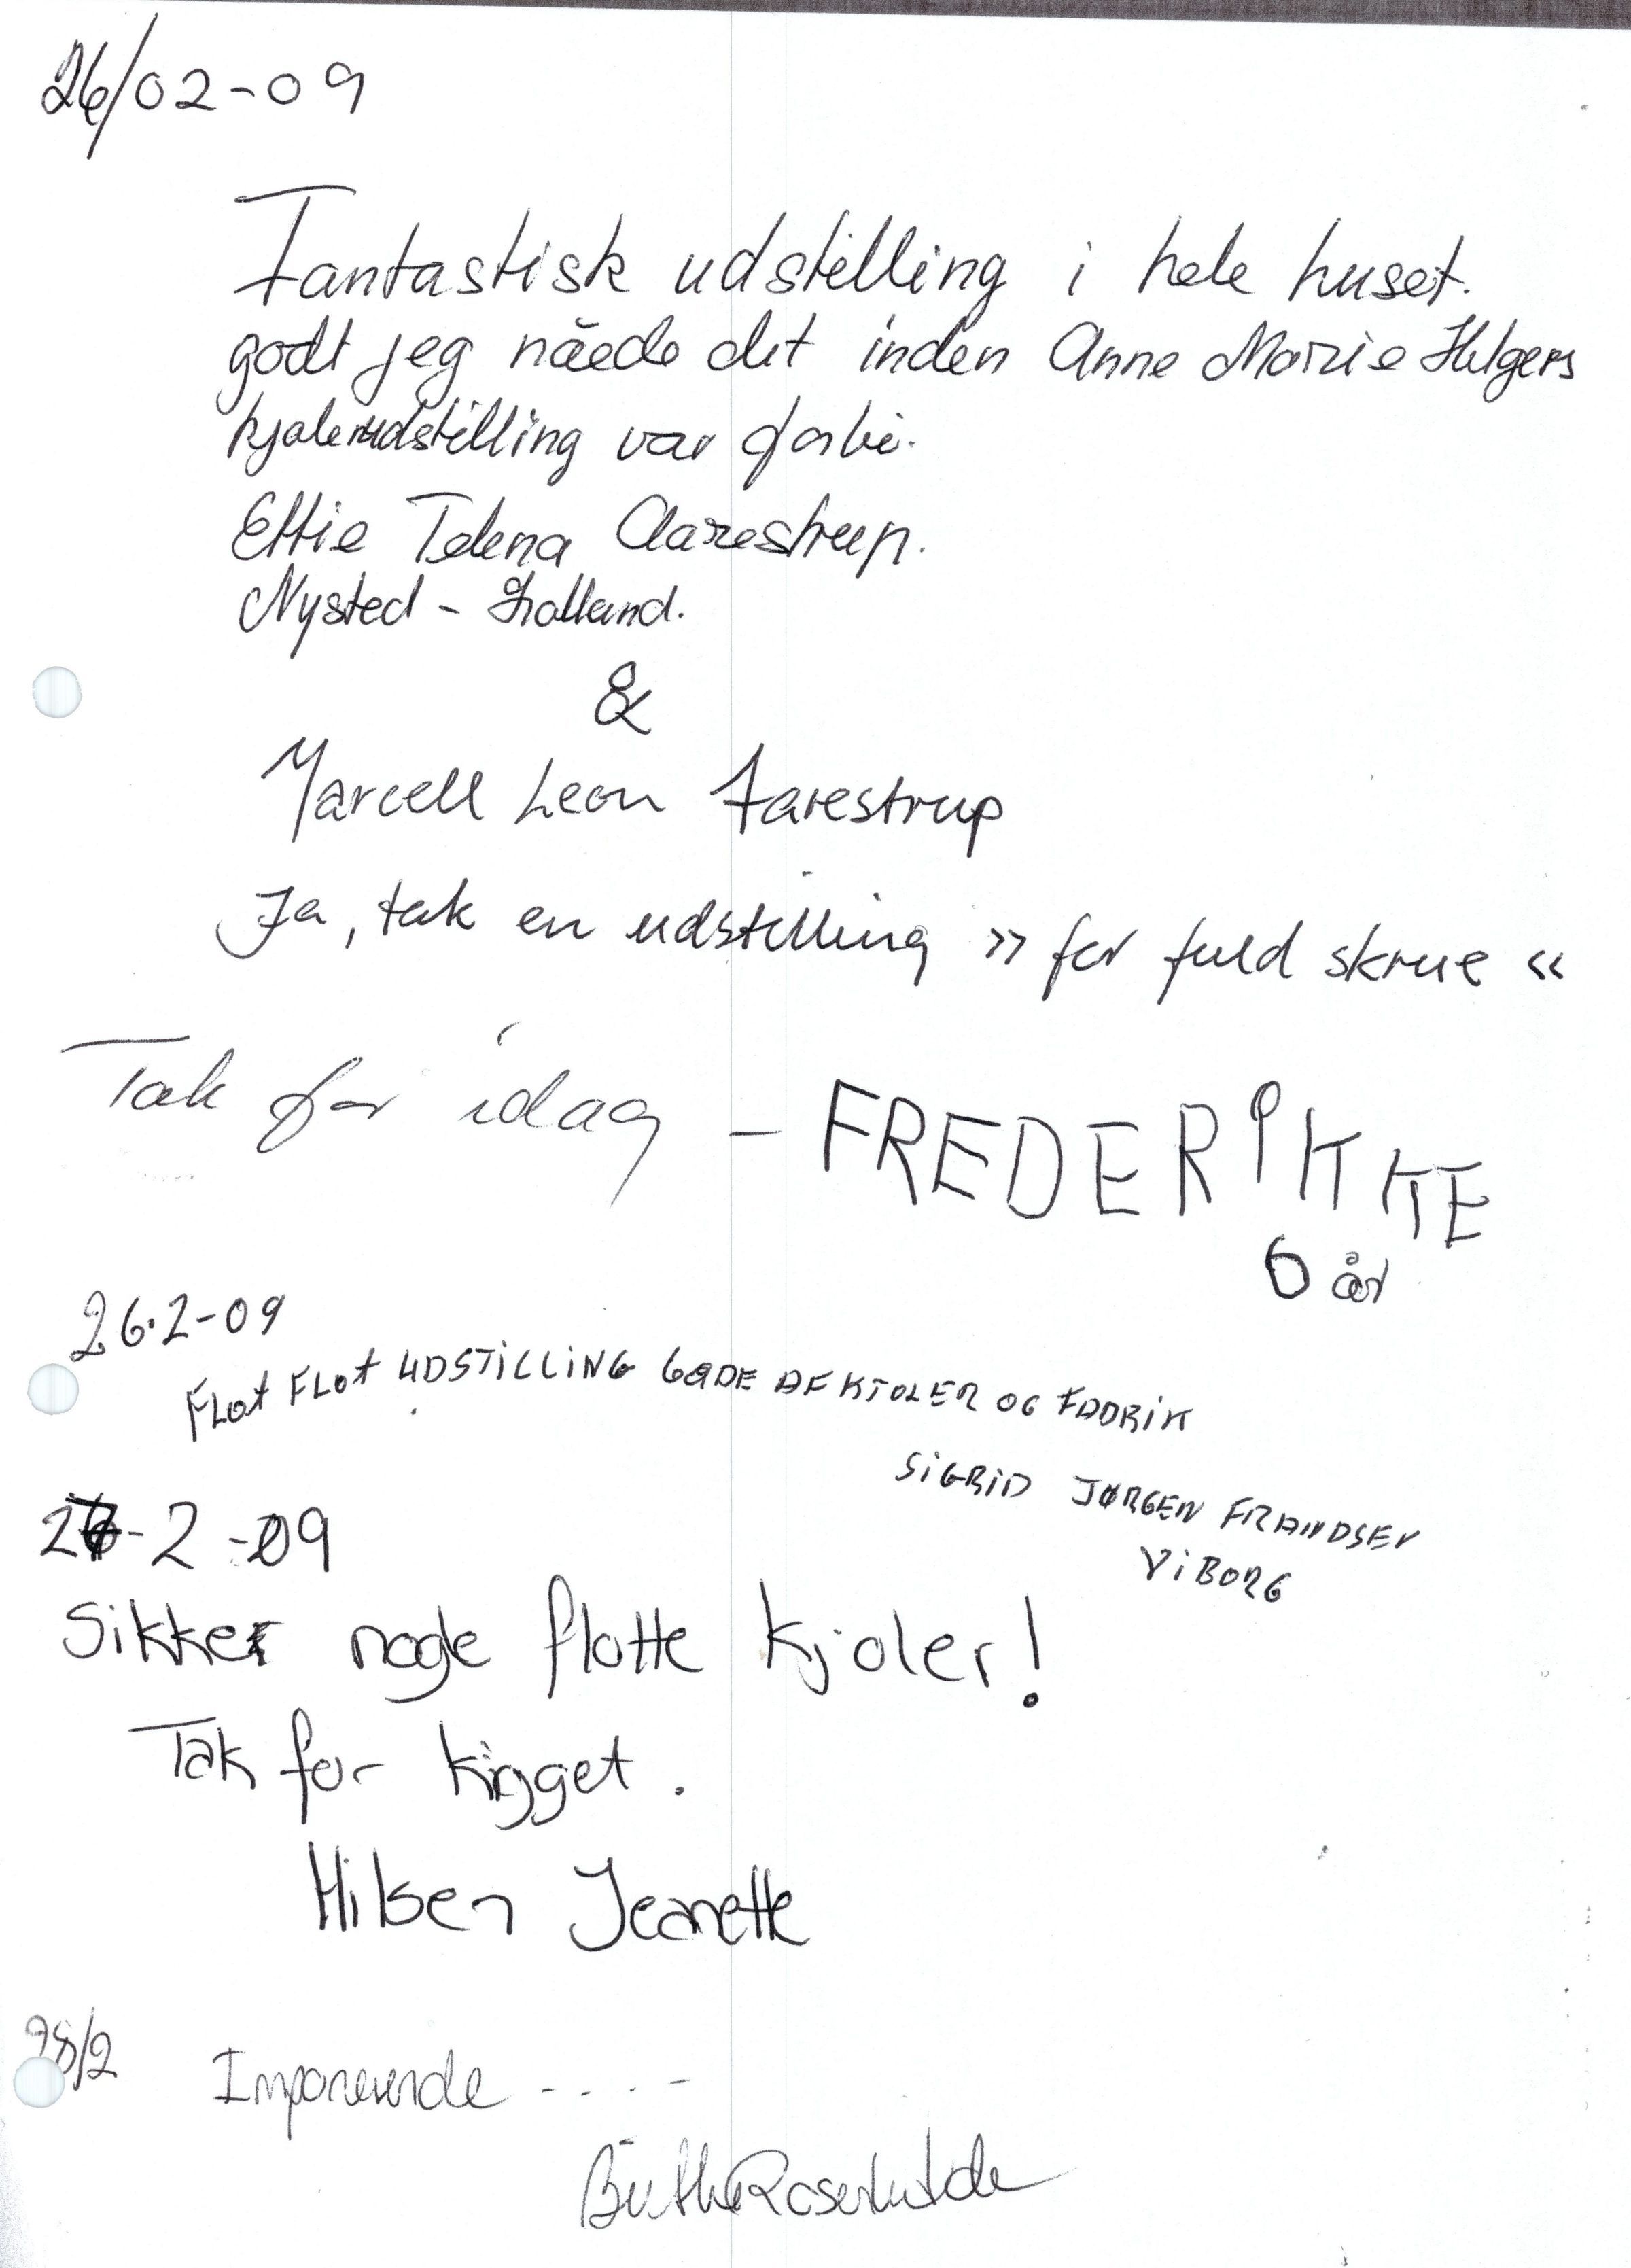 26/02-09
Fantastisk udstilling i hele huset.
godt jeg nåede det inden Anne Marie Helgers
kjoleudstilling var forbi.
Effie Telena Aarestrup.
Nysted - Lolland.
&
Marcell Leon Aarestrup
Ja, tak en udstilling » for fuld skrue «
Tak for idag - FREDERIKKE
6 år
26.2-09
FLOT FLOT UDSTILLING BÅDE AF KJOLER OG FABRIK
SIGRID JØRGEN FRANDSEN
VIBORG
27-2-09
Sikke nogle flotte kjoler!
Tak for kigget.
Hilsen Jeanette
28/2 Imponerende ....